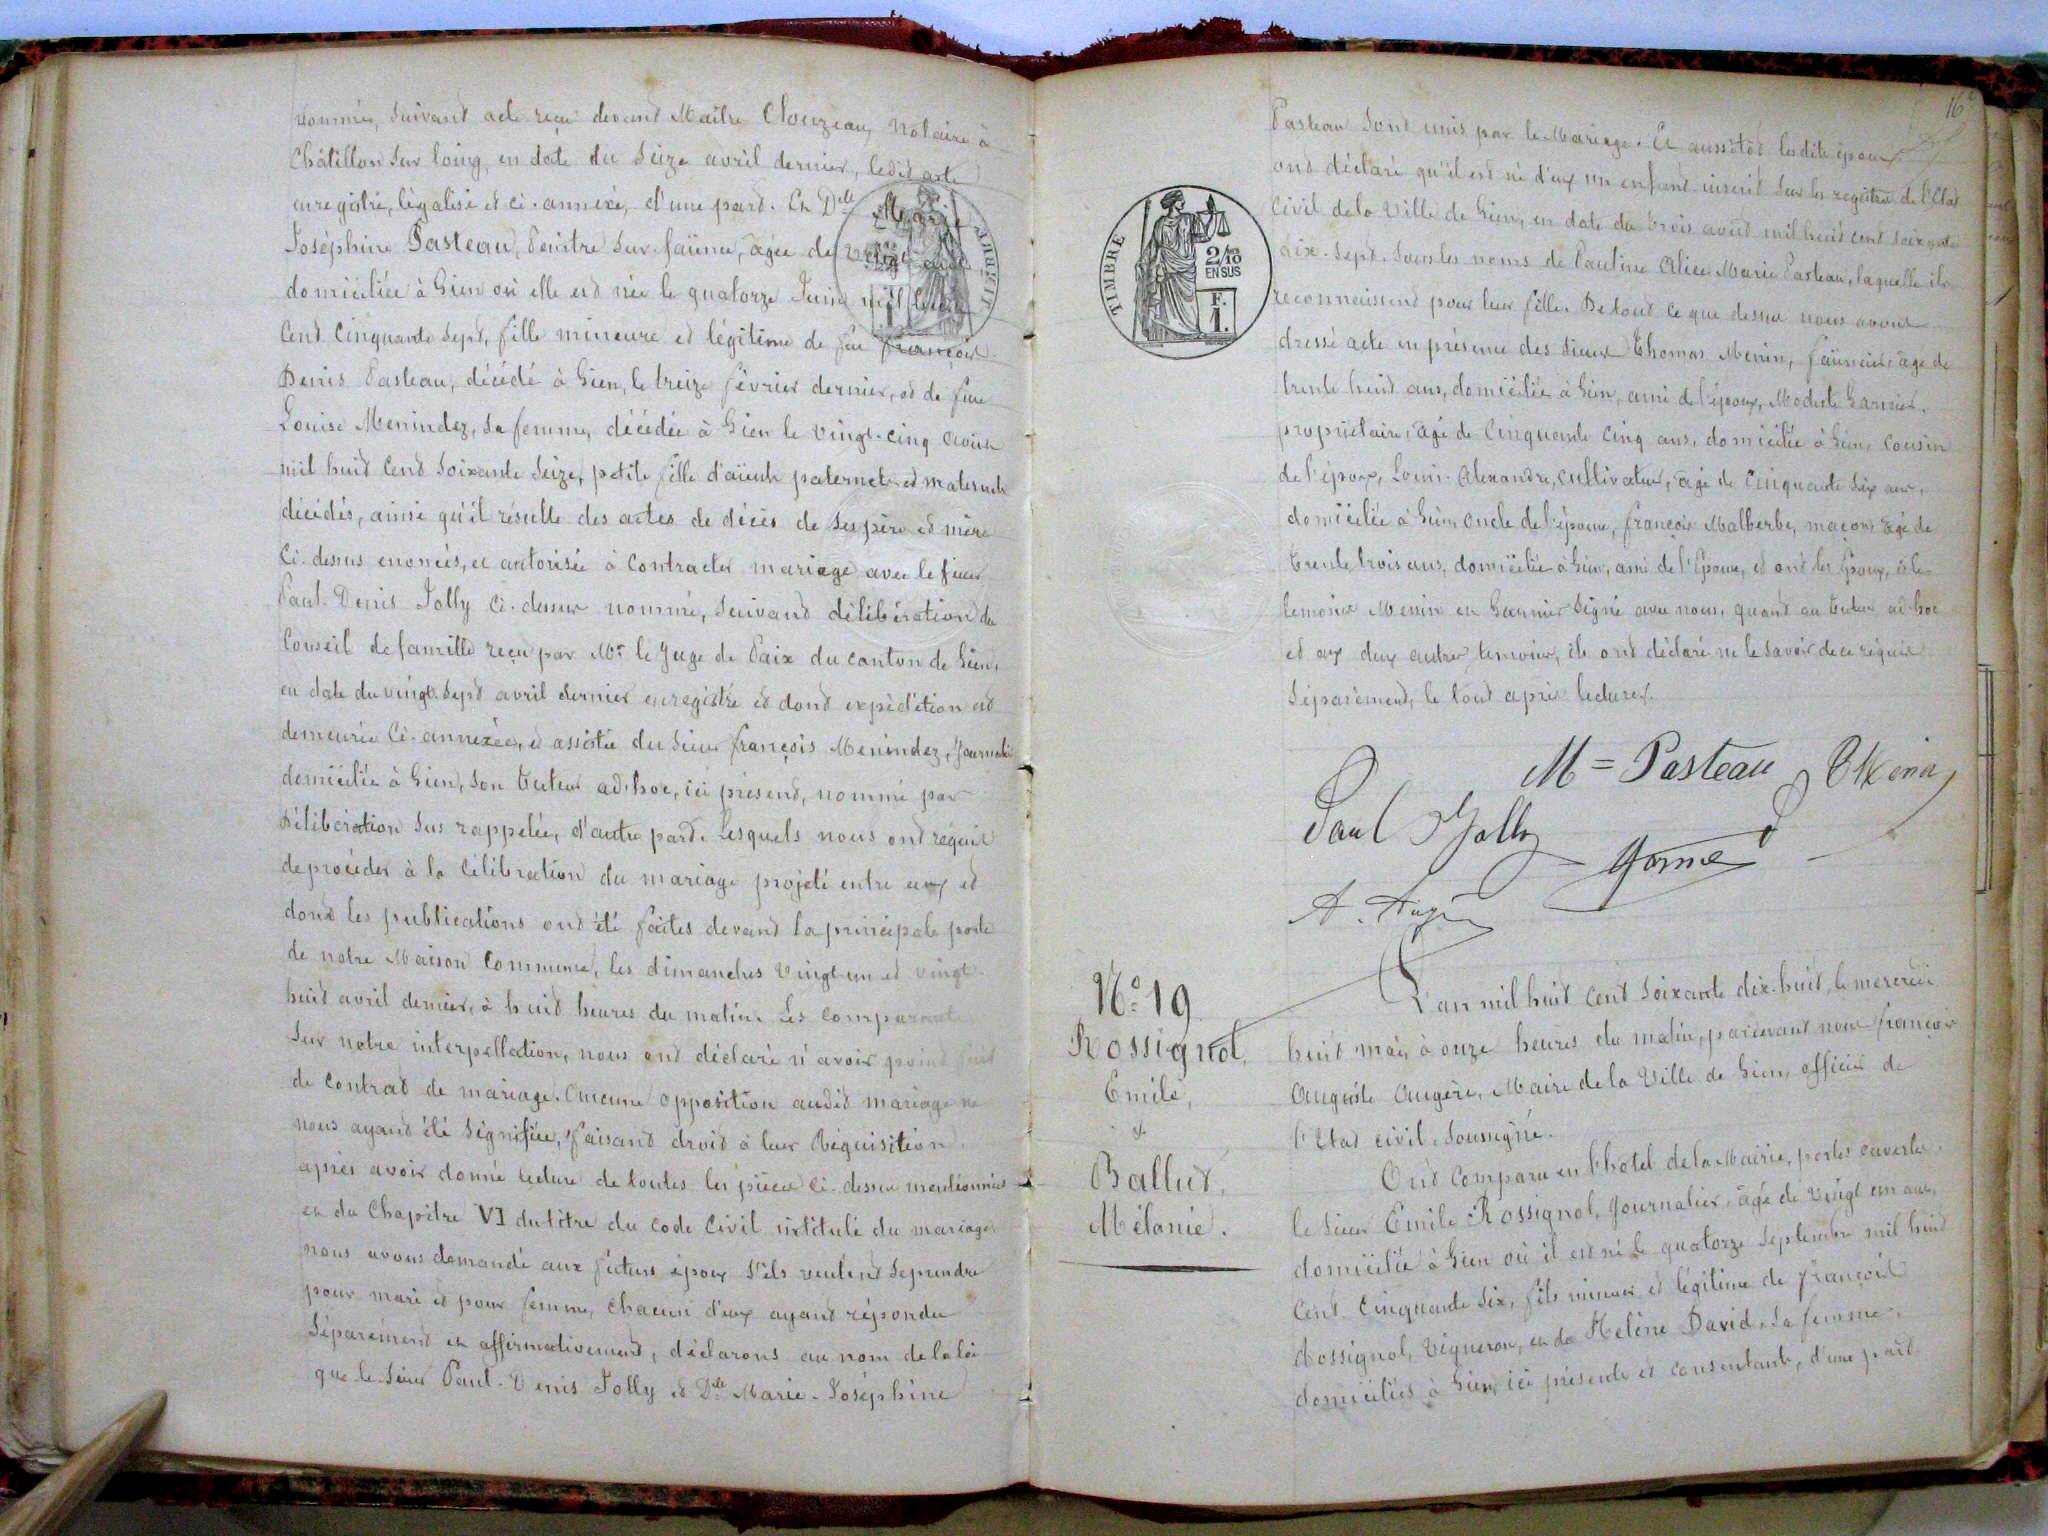 nommés, suivant acte reçu devant Maître Clouzeau, notaire à
Châtillon sur Loing, en date du seize avril dernier, ledit acte
enregistré, légalisé et ci-annexé, d'une part. Et Dlle Marie
Joséphine Pasteau, peintre sur faïence, âgée de vingt ans
domiciliée à Gien où elle est née le quatorze Juin mil huit
cent cinquante sept, fille mineure et légitime de feu françois
Denis Pasteau, décédé à Gien, le treize février dernier, et de feue
Louise Menindez, sa femme, décédée à Gien le vingt-cinq
mil huit cent soixante seize, petite fille d'aïeuls paternels et maternels
décédés, ainsi qu'il résulte des actes de décès de ses père et mère
ci-dessus enoncés, et autorisée à contracter mariage avec le sieur
Paul-Denis Jolly ci-dessus nommé, suivant délibération du
conseil de famille reçu par Mr le Juge de Paix du canton de Gien,
en date du vingt-sept avril dernier enregistré et dont expédition est
demeurée ci-annexée, et assistée du sieur françois Menindez, journalier
domicilié à Gien, son tuteur ad-hoc, ici présent, nommé par
délibération sus rappelée, d'autre part. Lesquels nous ont requis
de procéder à la célébration du mariage projeté entre eux et
dont les publications ont été faites devant la principale porte
de notre Maison Commune, les dimanches vingt-un et vingt-
huit avril dernier, à huit heures du matin. Les comparants
sur notre interpellation, nous ont déclaré n'avoir point fait
de contrat de mariage. Aucune opposition audit mariage ne
nous ayant été signifiée, faisant droit à leur réquisition
après avoir donné lecture de toutes les pièces ci-dessus mentionnées
et du Chapitre VI du titre du code Civil intitulé du mariage
nous avons demandé aux futurs époux s'ils veulent se prendre
pour mari et pour femme, chacun d'eux ayant répondu
séparément et affirmativement, déclarons au nom de la loi
que le sieur Paul-Denis Jolly et Dlle Marie-Joséphine
16e
Pasteau sont unis par le Mariage. Et aussitôt lesdits époux
ont déclaré qu'il est né d'eux un enfant inscrit sur les registres de l'Etat
civil de la Ville de Gien, en date du trois août mil huit cent soixante
dix-sept, sous les noms de Pauline Alice Marie Pasteau, laquelle ils
reconnaissent pour leur fille. De tout ce que dessus nous avons
dressé acte en présence des sieurs Thomas Menin, faïencier, âgé de
trente huit ans, domicilié à Gien, ami de l'époux, Modeste Garnier,
propriétaire, âgé de cinquante cinq ans, domicilié à Gien, cousin
de l'époux, Louis-Alexandre, cultivateur, âgé de cinquante six ans,
domicilié à Gien, oncle de l'épouse, françois Malherbe, maçon âgé de
trente trois ans, domicilié à Gien, ami de l'Epouse, et ont les Epoux, et les
témoins Menin et Garnier signé avec nous, quant au tuteur ad-hoc
et aux deux autres témoins, ils ont déclaré ne le savoir de ce requis
séparément, le tout après lecture.
TIMBRE
2/10
EN SUS
F.
1.
M = Pasteau
Paul Jolly
No 19
Rossignol,
Emile,
&
Ballut,
Mélanie.
L'an mil huit cent soixante dix-huit, le mercredi
huit mai, à onze heures du matin, pardevant nous françois
Auguste Augère, Maire de la Ville de Gien, officier de
l'Etat civil, soussigné.
Ont comparu en l'hôtel de la Mairie, portes ouvertes.
le sieur Emile Rossignol, journalier, âgé de vingt un ans,
domicilié à Gien où il est né le quatorze septembre mil huit
cent cinquante six, fils mineur et légitime de françois
Rossignol, vigneron, et de Hélène David, sa femme,
domiciliés à Gien, ici présents et consentants, d'une part